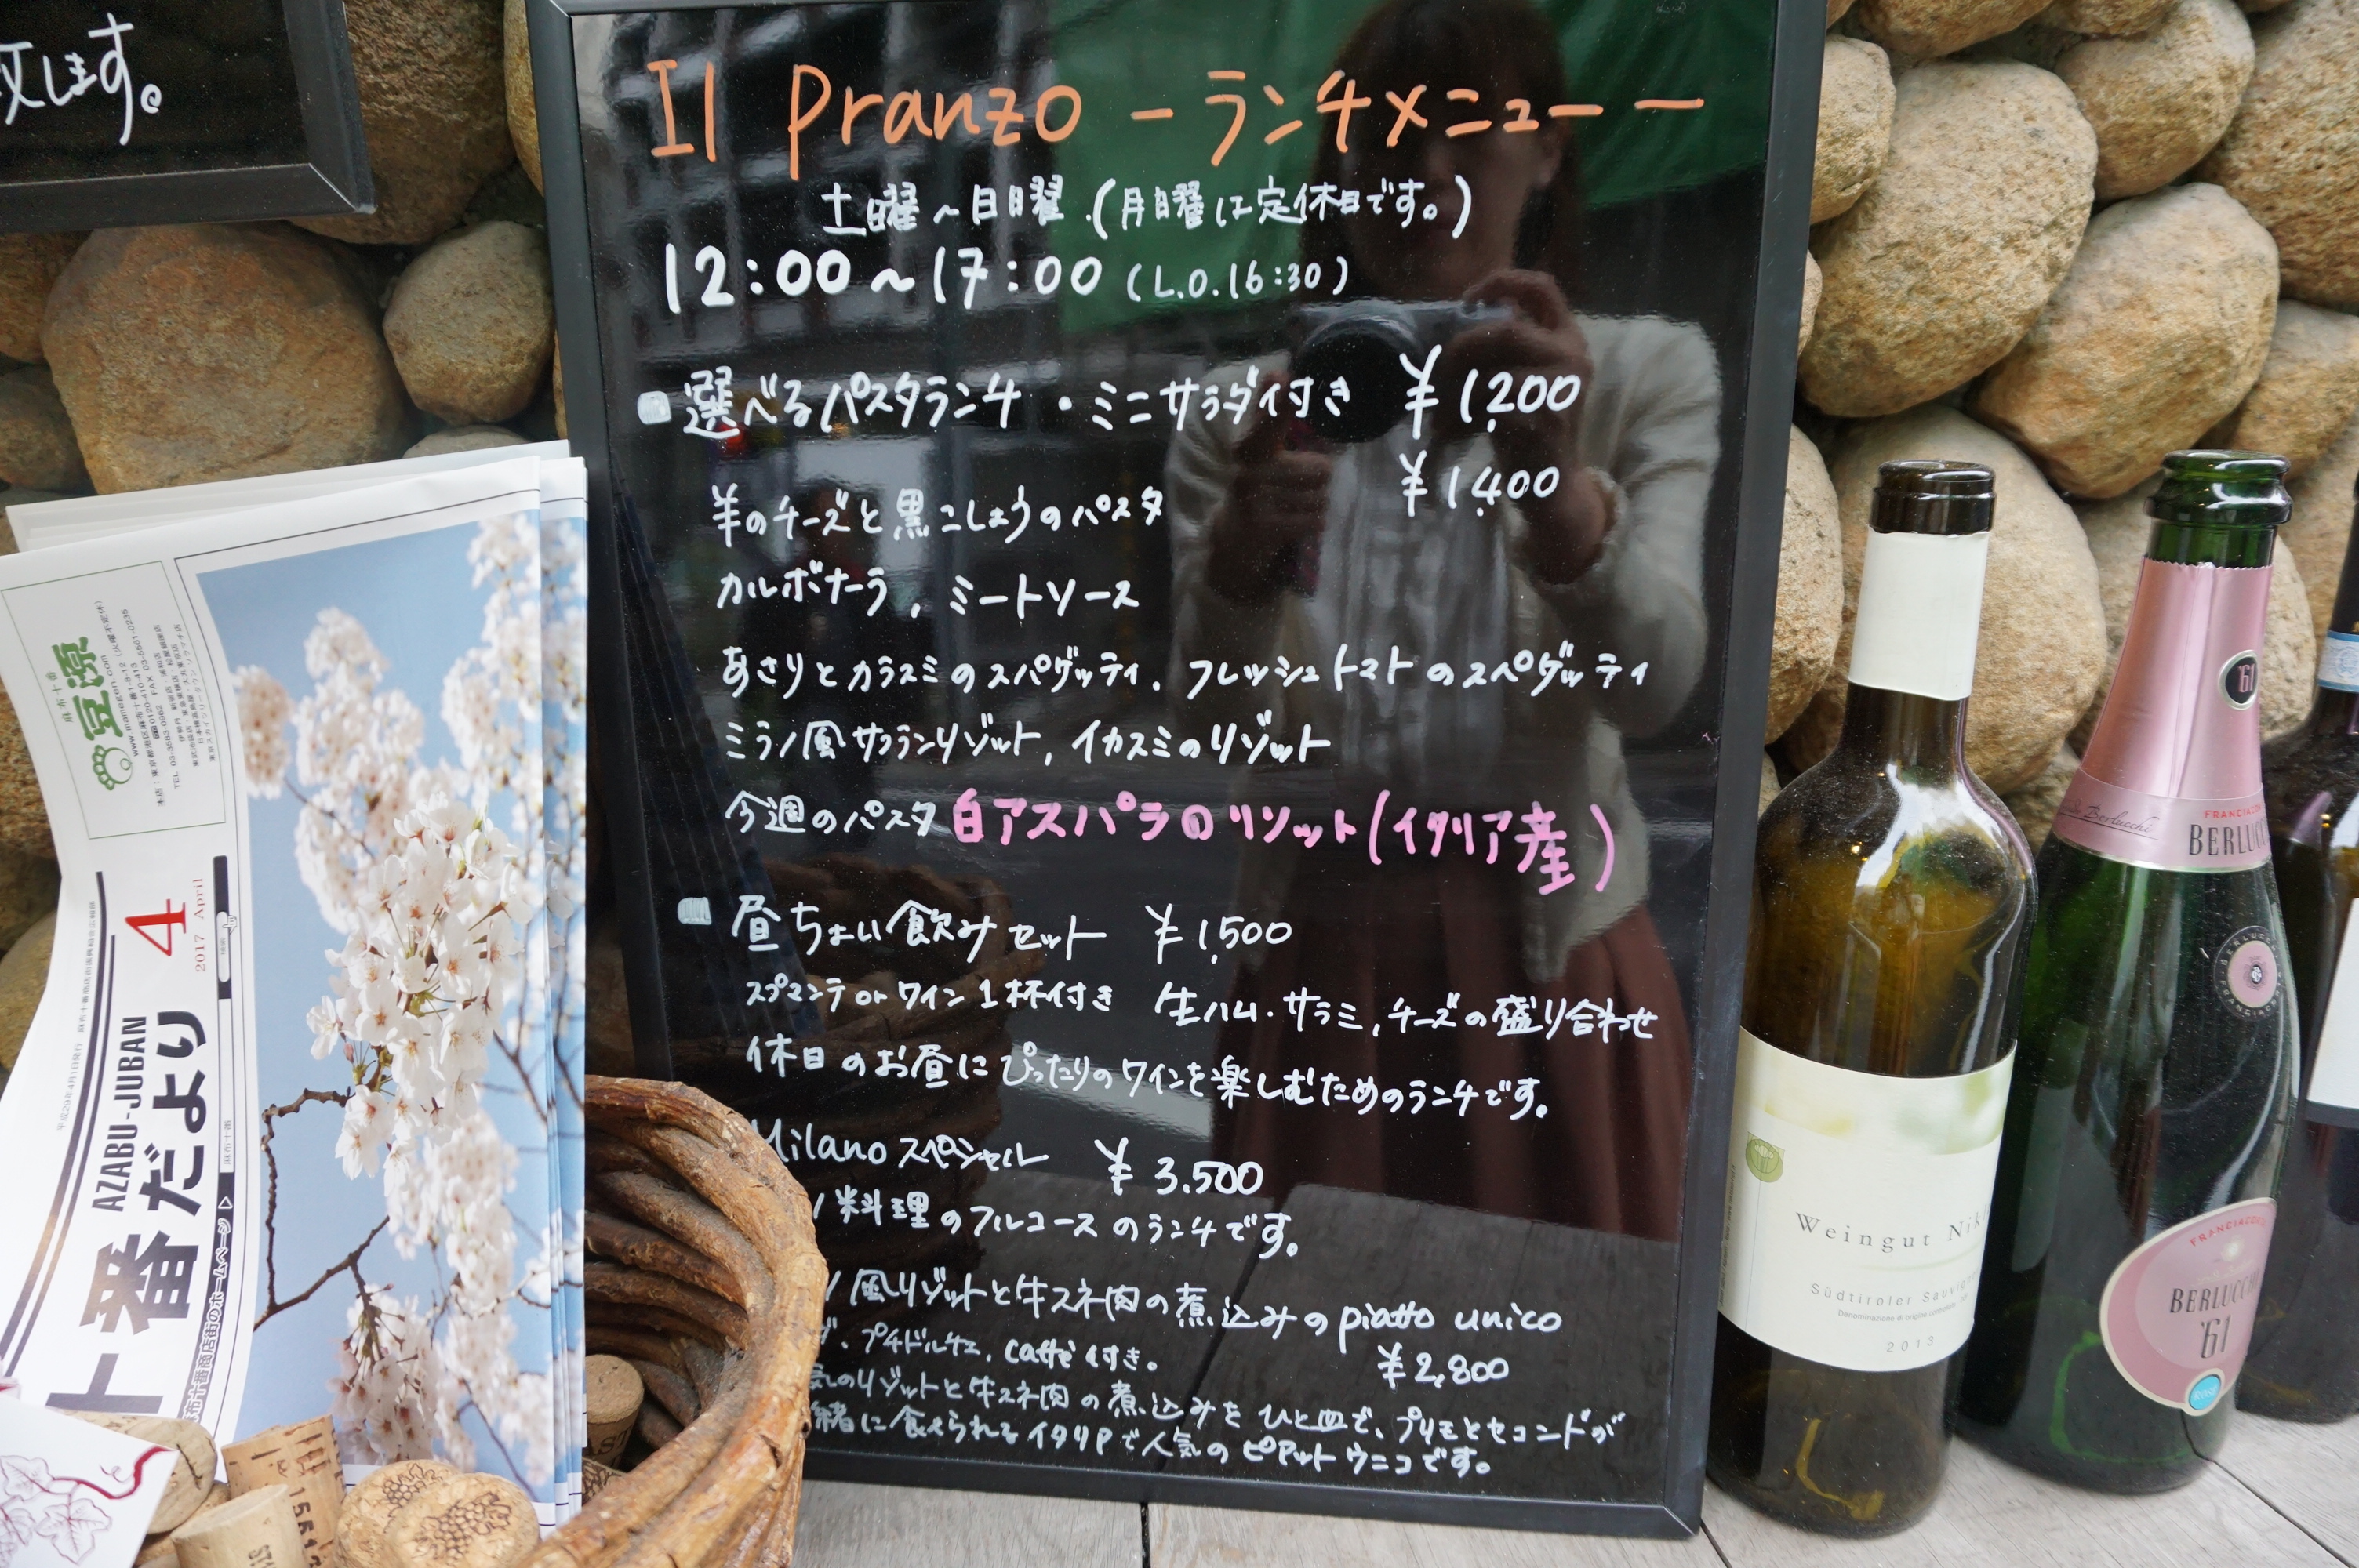 致します。
Il Pranzo -ランチメニュー-
土曜~日曜.(月曜は定休日です。)
12:00~17:00(L.O.16:30)
選べるパスタランチ・ミニサラダ付き ¥1,200
¥1,400
羊のチーズと黒こしょうのパスタ
カルボナーラ,ミートソース
あさりとカラスミのスパゲッティ,フレッシュトマトのスペゲッティ
ミラノ風サフランリゾット,イカスミのリゾット
今週のパスタ 白アスパラのリゾット(イタリア産)
昼ちょい飲みセット ¥1,500
スプマンテorワイン1杯付き 生ハム・サラミ,チーズの盛り合わせ
休日のお昼にぴったりのワインを楽しむためのランチです。
Milano スペシャル ¥3.500
ノ料理のフルコースのランチです。
ノ風リゾットと牛スネ肉の煮込みのpiatto unico
ダ、プチドルチェ,caffè付き。
¥2,800
気のリゾットと牛スネ肉の煮込みをひと皿で、プリモとセコンドが
緒に食べられるイタリアで人気のピアットウニコです。
麻布十番
豆源
www.mamegen.com
4
2017 April
AZABU-JUBAN
十番だより
麻布十番商店街のホームページ
平成29年4月1日発行
Weingut Nik
Südtiroler Sauvign
2013
'61
FRANCIACO
BERLUC
FRANCIACO
BERLUCC
'61